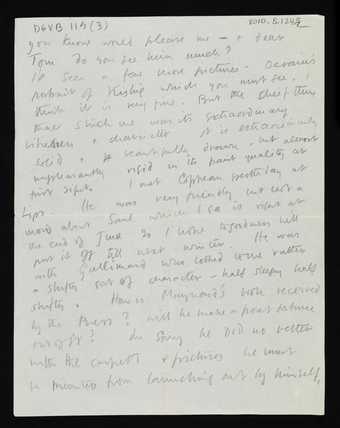 DGVB 115 (3)
2010.5.1245
you know would please me — & dear
Tom do you see him much?
I'd seen a few more pictures. Derain's
portrait of Kisling which you must see. I
think it is very fine. But the chief thing
that struck me was its extraordinary
it is extraordinarily
solid & beautifully drawn, but almost
unpleasantly rigid in its paint quality at
first sight. I met Copeau yesterday at
Lips. He was very friendly but not a
word about Saul which I see is right at
the end of June so I hope to goodness he'll
put it off till next winter. He was
with Gallimard who looked to me rather
a shifty sort of character — half sleepy half
shifty. How is Maynard's book received
by the Press? Will he make a great fortune
out of it? I'm sorry he did no better
with the carpets & pictures he must
be prevented from launching out by himself,